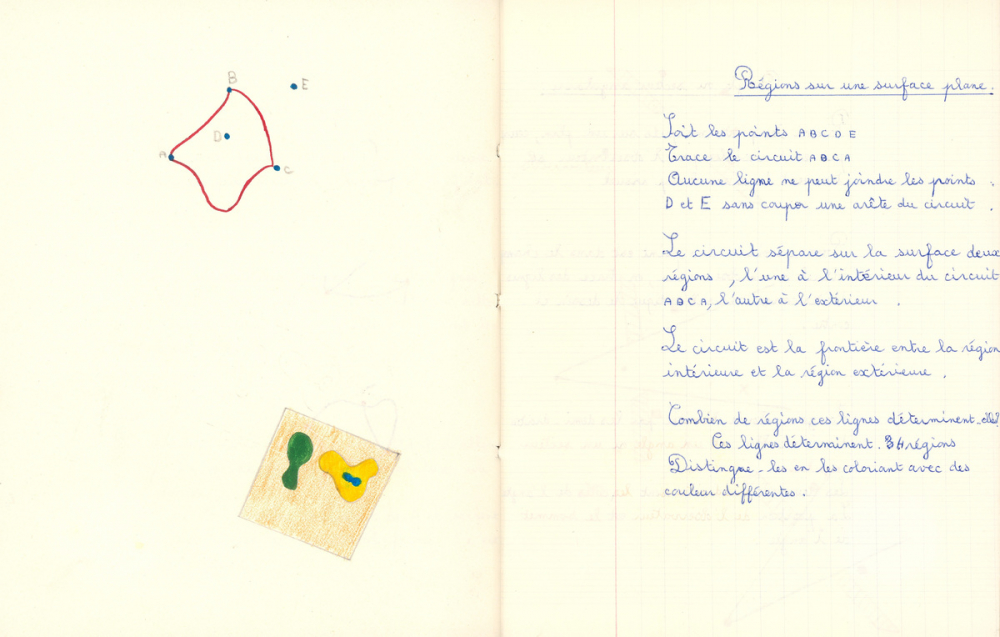 B
E
D
A
C
Régions sur une surface plane.
Soit les points A B C D E
Trace le circuit A B C A
Aucune ligne ne peut joindre les points
D et E sans couper une arête du circuit .
Le circuit sépare sur la surface deux
régions , l'une à l'intérieur du circuit
A B C A, l'autre à l'extérieur .
Le circuit est la frontière entre la région
intérieure et la région extérieure .
Combien de régions ces lignes déterminent-elles?
Ces lignes déterminent. 4 régions
Distingue-les en les coloriant avec des
couleur différentes .